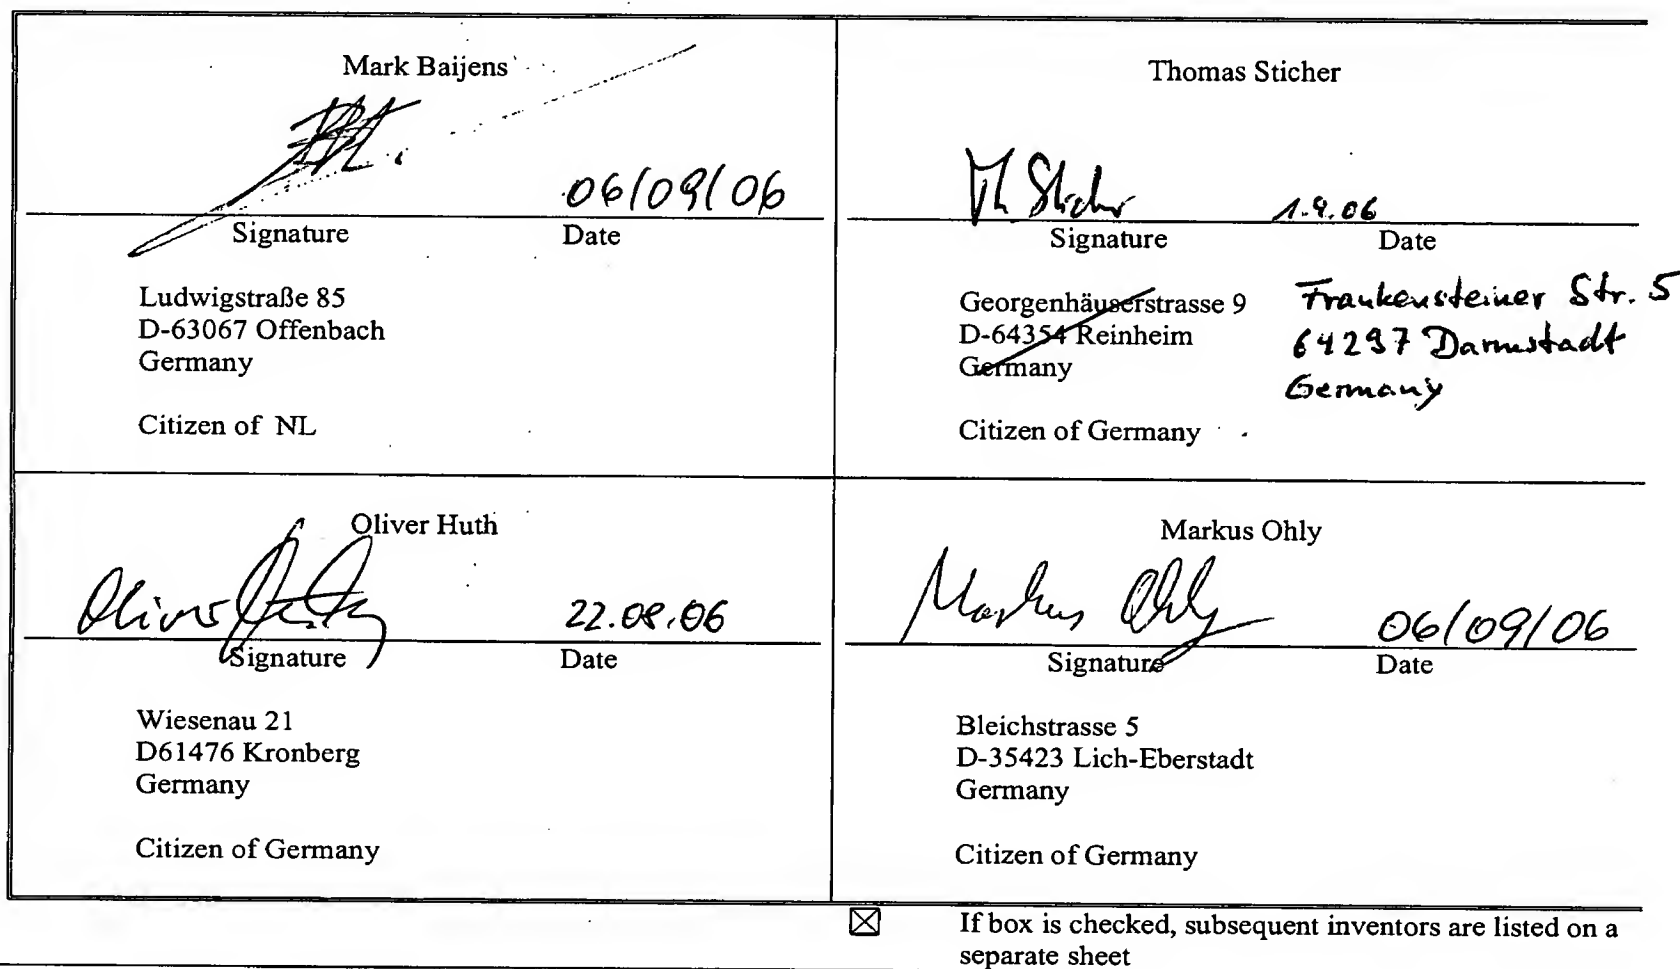 Mark Baijens
06/09/06
Signature Date
Ludwigstraße 85
D-63067 Offenbach
Germany
Citizen of NL
Thomas Sticher
Th Sticher 1.9.06
Signature Date
Georgenhäuserstrasse 9
D-64354 Reinheim
Germany
Frankensteiner Str. 5
64297 Darmstadt
Germany
Citizen of Germany
Oliver Huth
Oliver Huth 22.08.06
Signature Date
Wiesenau 21
D61476 Kronberg
Germany
Citizen of Germany
Markus Ohly
Markus Ohly 06/09/06
Signature Date
Bleichstrasse 5
D-35423 Lich-Eberstadt
Germany
Citizen of Germany
If box is checked, subsequent inventors are listed on a
separate sheet